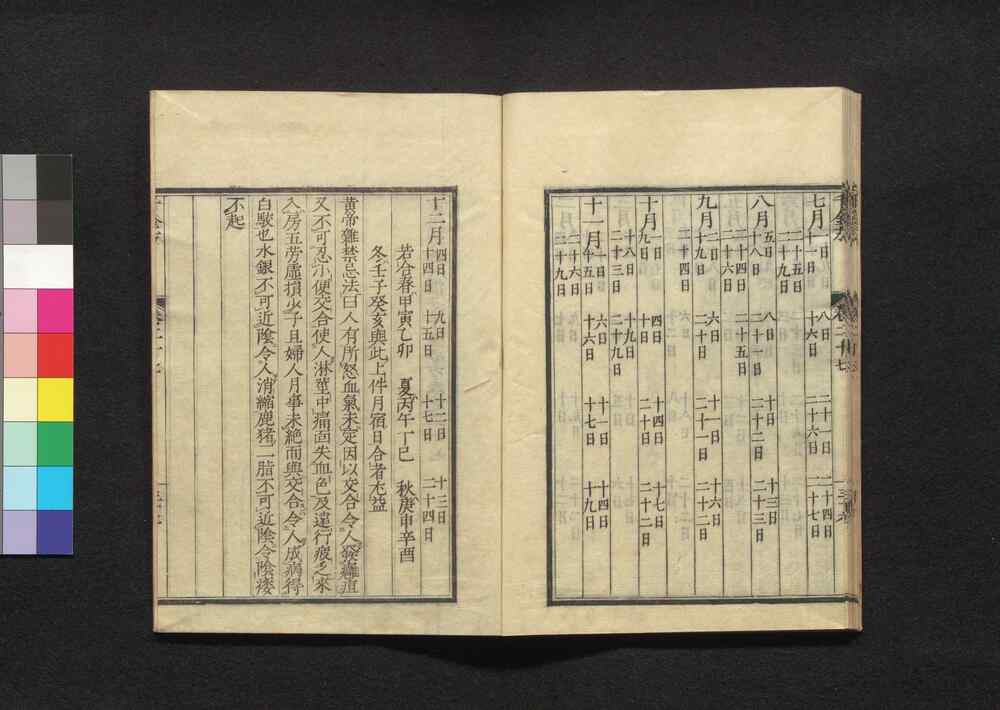 七月一日　八日　二十一日　二十四日
十一日　十六日　二十六日　二十七日
二十五日
二十九日
八月五日　八日　十日　十三日
十八日　二十一日　二十二日　二十三日
二十四日　二十五日
二十六日
九月二日　六日　十一日　十六日
十九日　二十日　二十一日　二十二日
二十四日
十月一日　四日　十四日　十七日
九日　十日　二十日　二十二日
十八日　十九日
二十三日　二十九日
十一月一日　六日　十一日　十四日
十五日　十六日　十七日　十九日
二十六日
二十九日
十二月四日　九日　十二日　十三日
十四日　十五日　十七日　二十四日
若合春甲寅乙卯　夏丙午丁巳　秋庚申辛酉
冬壬子癸亥與此上件月宿日合者尤益
黃帝雜禁忌法曰人有所怒血氣未定因以交合令人發癰疽
又不可忍小便交合使人淋莖中痛面失血色及遠行疲乏來
入房五勞虛損少子且婦人月事未絕而與交合令人成病得
白駁也水銀不可近陰令人消縮鹿猪二脂不可近陰令陰痿
不起